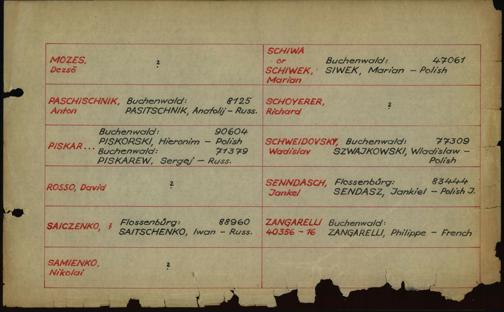 MOZES,
Dezsö
?
PASCHISCHNIK, Buchenwald: 8125
Anton PASITSCHNIK, Anatolij - Russ.
Buchenwald: 90604
PISKORSKI, Hieronim - Polish
PISKAR... Buchenwald: 71379
PISKAREW, Sergej - Russ.
ROSSO, David ?
SAICZENKO, Flossenbürg: 88960
SAITSCHENKO, Iwan - Russ.
SAMIENKO, ?
Nikolai
SCHIWA
or Buchenwald: 47061
SCHIWEK, SIWEK, Marian - Polish
Marian
SCHOYERER, ?
Richard
SCHWEIDOVSKY, Buchenwald: 77309
Wadislav SZWAJKOWSKI, Wladislaw -
Polish
SENNDASCH, Flossenbürg: 83444
Jankel SENDASZ, Jankiel - Polish J.
ZANGARELLI Buchenwald:
40356 - 16 ZANGARELLI, Philippe - French